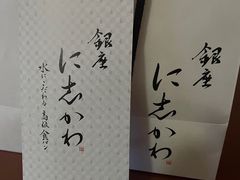 銀座
に志かわ
水にこだわる高級食パン
銀座
に志かわ